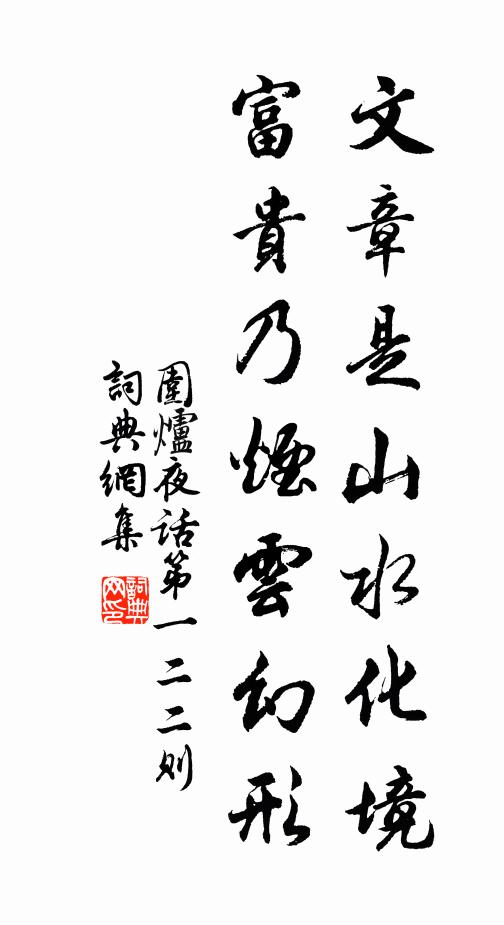 文章是山水化境
富貴乃煙雲幻形
圍爐夜話第一二二則
詞典網集
詞典网印